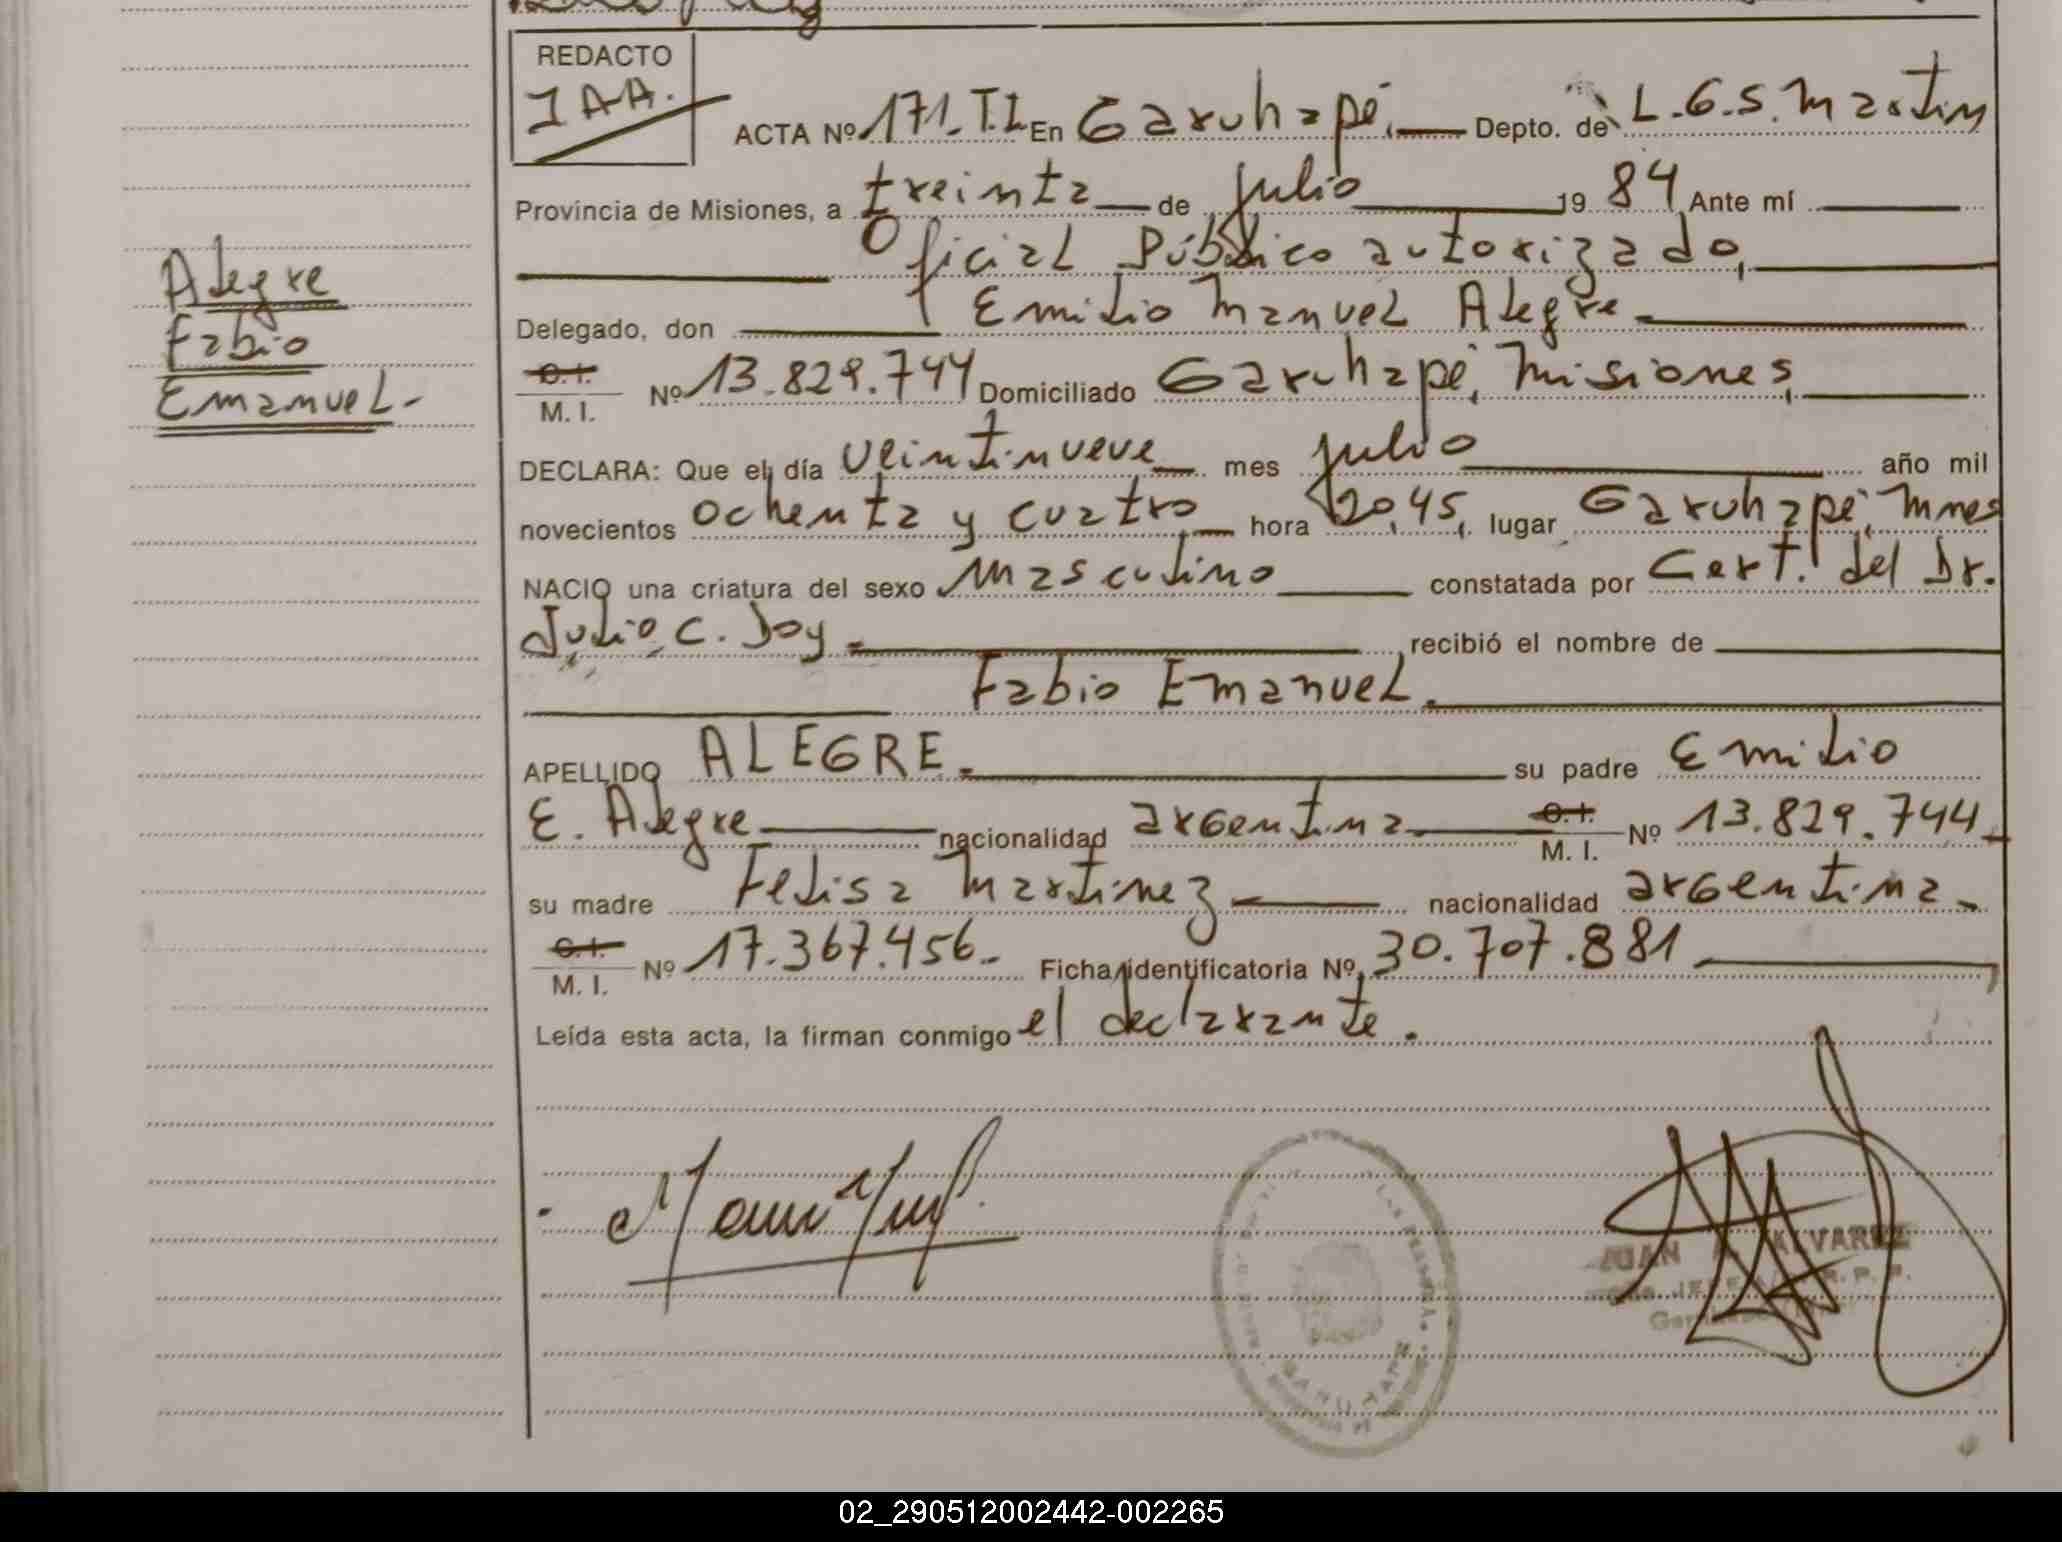 REDACTO
J A A.
ACTA Nº 171. T.I. En Garuhapé. Depto. de L.G.S. Martin
Provincia de Misiones, a treinta de julio 19 84 Ante mí
Oficial Público autorizado,
Delegado, don Emilio Manuel Alegre
C.I. M. I. Nº 13.829.744 Domiciliado Garuhapé, Misiones,
DECLARA: Que el día veintinueve mes julio año mil
novecientos ochenta y cuatro hora 20,45, lugar Garuhapé, Mnes
NACIO una criatura del sexo masculino constatada por Cert. del Dr.
Julio C. Doy. recibió el nombre de
Fabio Emanuel.
APELLIDO ALEGRE. su padre Emilio
E. Alegre nacionalidad argentina C.I. M. I. Nº 13.829.744
su madre Felisa Martinez nacionalidad argentina
C.I. M. I. Nº 17.367.456. Ficha identificatoria Nº 30.707.881
Leída esta acta, la firman conmigo el declarante.
Alegre
Fabio
Emanuel
JUAN A. ALVAREZ
GARUHAPE
02_290512002442-002265